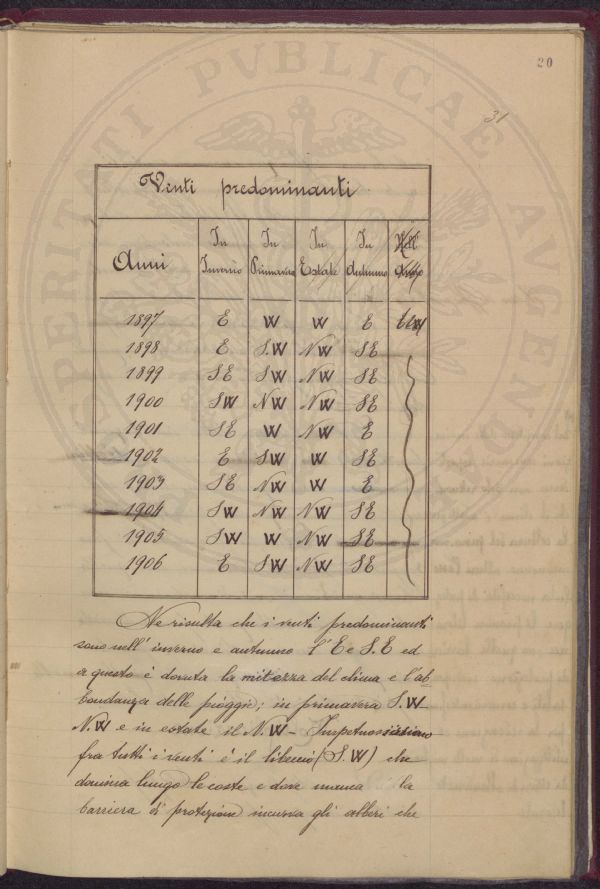 PROSPERITATI PUBLICAE AUGENDAE
20
31
Venti predominanti
Anni In Inverno In Primavera In Estate In Autunno Nell' Anno
1897 E W W E E e W
1898 E S.W NW SE
1899 SE SW NW SE
1900 SW NW NW SE
1901 SE W NW E
1902 E SW W SE
1903 SE NW W E
1904 SW NW NW SE
1905 SW W NW SE
1906 E SW NW SE
Ne risulta che i venti predominanti
sono nell' inverno e autunno l'E e S.E ed
a questo è dovuta la mitezza del clima e l'ab-
bondanza delle pioggie; in primavera S.W
N.W e in estate il N.W - Impetuosissimo
fra tutti i venti è il libeccio (S.W) che
domina lungo le coste e dove manca la
barriera di protezione incurva gli alberi che